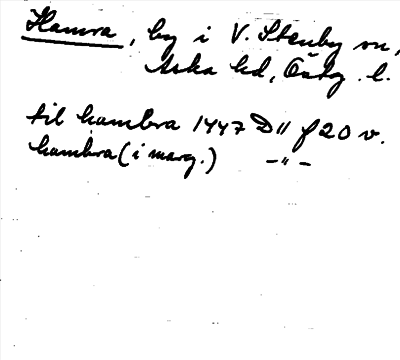 Hamra, by i V. Stenby sn,
Aska hd, Östg. l.
til hambra 1447 D 11 f 20 v.
hambra (i marg.) -"-